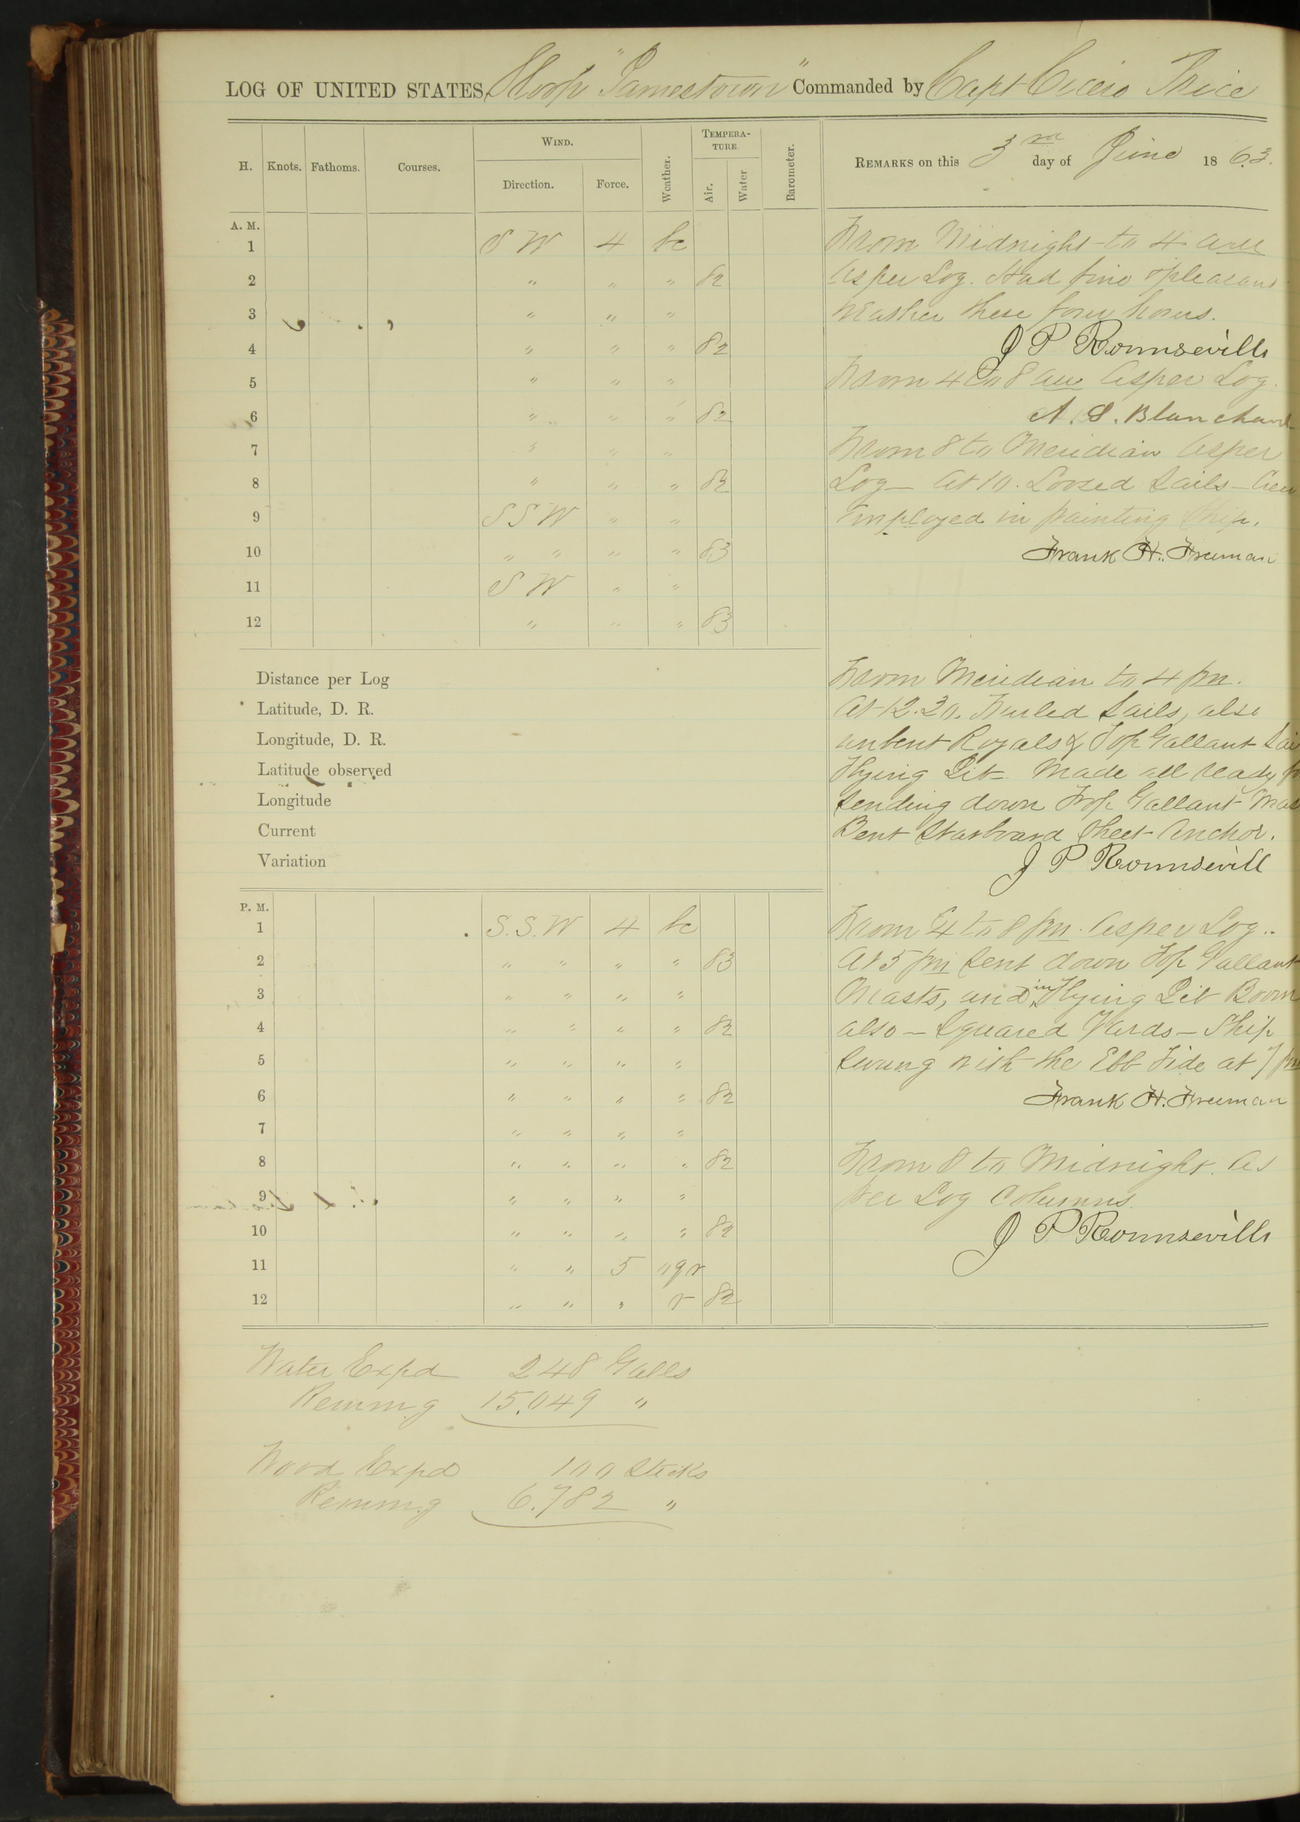 LOG OF UNITED STATES Sloop "Jamestown" Commanded by Capt Cicero Price
H. Knots. Fathoms. Courses. WIND. Direction. Force. Weather. TEMPERATURE. Air. Water Barometer.
REMARKS on this 3rd day of June 1863.
A. M.
1 S W 4 bc
2 " " " 82
3 " " "
4 " " " 82
5 " " "
6 " " " 82
7 " " "
8 " " " 82
9 S S W " "
10 " " " " 83
11 S W " "
12 " " " 83
From Midnight to 4 am
As per Log. Had fine & pleasant
weather these four hours.
J P Rounsevill
From 4 to 8 am As per Log.
A. S. Blanchard
From 8 to Meridian As per
Log — At 10. Loosed Sails — Crew
employed in painting Ship.
Frank H. Freeman
Distance per Log
Latitude, D. R.
Longitude, D. R.
Latitude observed
Longitude
Current
Variation
From Meridian to 4 pm.
At 12.30. Furled Sails, also
unbent Royals & Top Gallant Sai
Flying Jib. Made all ready fo
sending down Top Gallant Mas
Bent Starboard Sheet Anchor.
J P Rounsevill
P. M.
1 S. S. W 4 bc
2 " " " " 83
3 " " " "
4 " " " " 82
5 " " " "
6 " " " " 82
7 " " " "
8 " " " " 82
9 " " " "
10 " " " " 82
11 " " 5 " q r
12 " " " r 82
From 4 to 8 pm. As per Log.
At 5 pm Sent down Top Gallant
Masts, and in Flying Jib Boom
also — Squared Yards — Ship
swung with the Ebb Tide at 7 pm
Frank H. Freeman
From 8 to Midnight. As
per Log Columns
J P Rounsevill
Water Expd 248 Galls
Remmg 15.049 "
Wood Expd 100 Sticks
Remmg 6.782 "